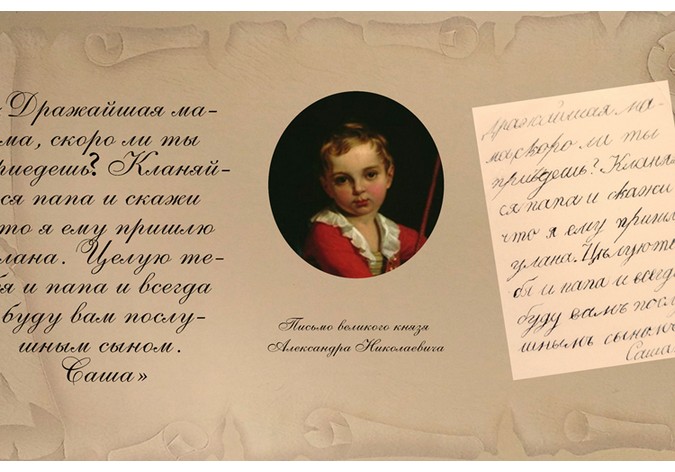 «Дражайшая ма-
ма, скоро ли ты
риедешь? Кланяй-
ся папа и скажи
то я ему пришлю
лана. Целую те-
бя и папа и всегда
буду вам послу-
шным сыном.
Саша»
Письмо великого князя
Александра Николаевича
Дражайшая ма-
ма скоро ли ты
приѣдешь? Кланя
ся папа и скажи
что я ему пришл
улана. Цѣлую те
бя и папа и всегд
буду вамъ посл
шнымъ сыномъ
Саша